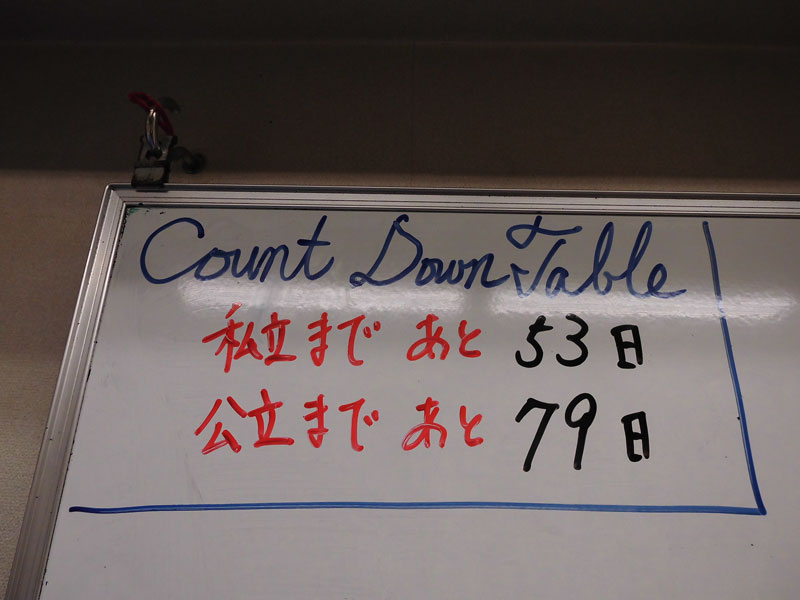 Count Down Table
私立まで あと 53日
公立まで あと 79日